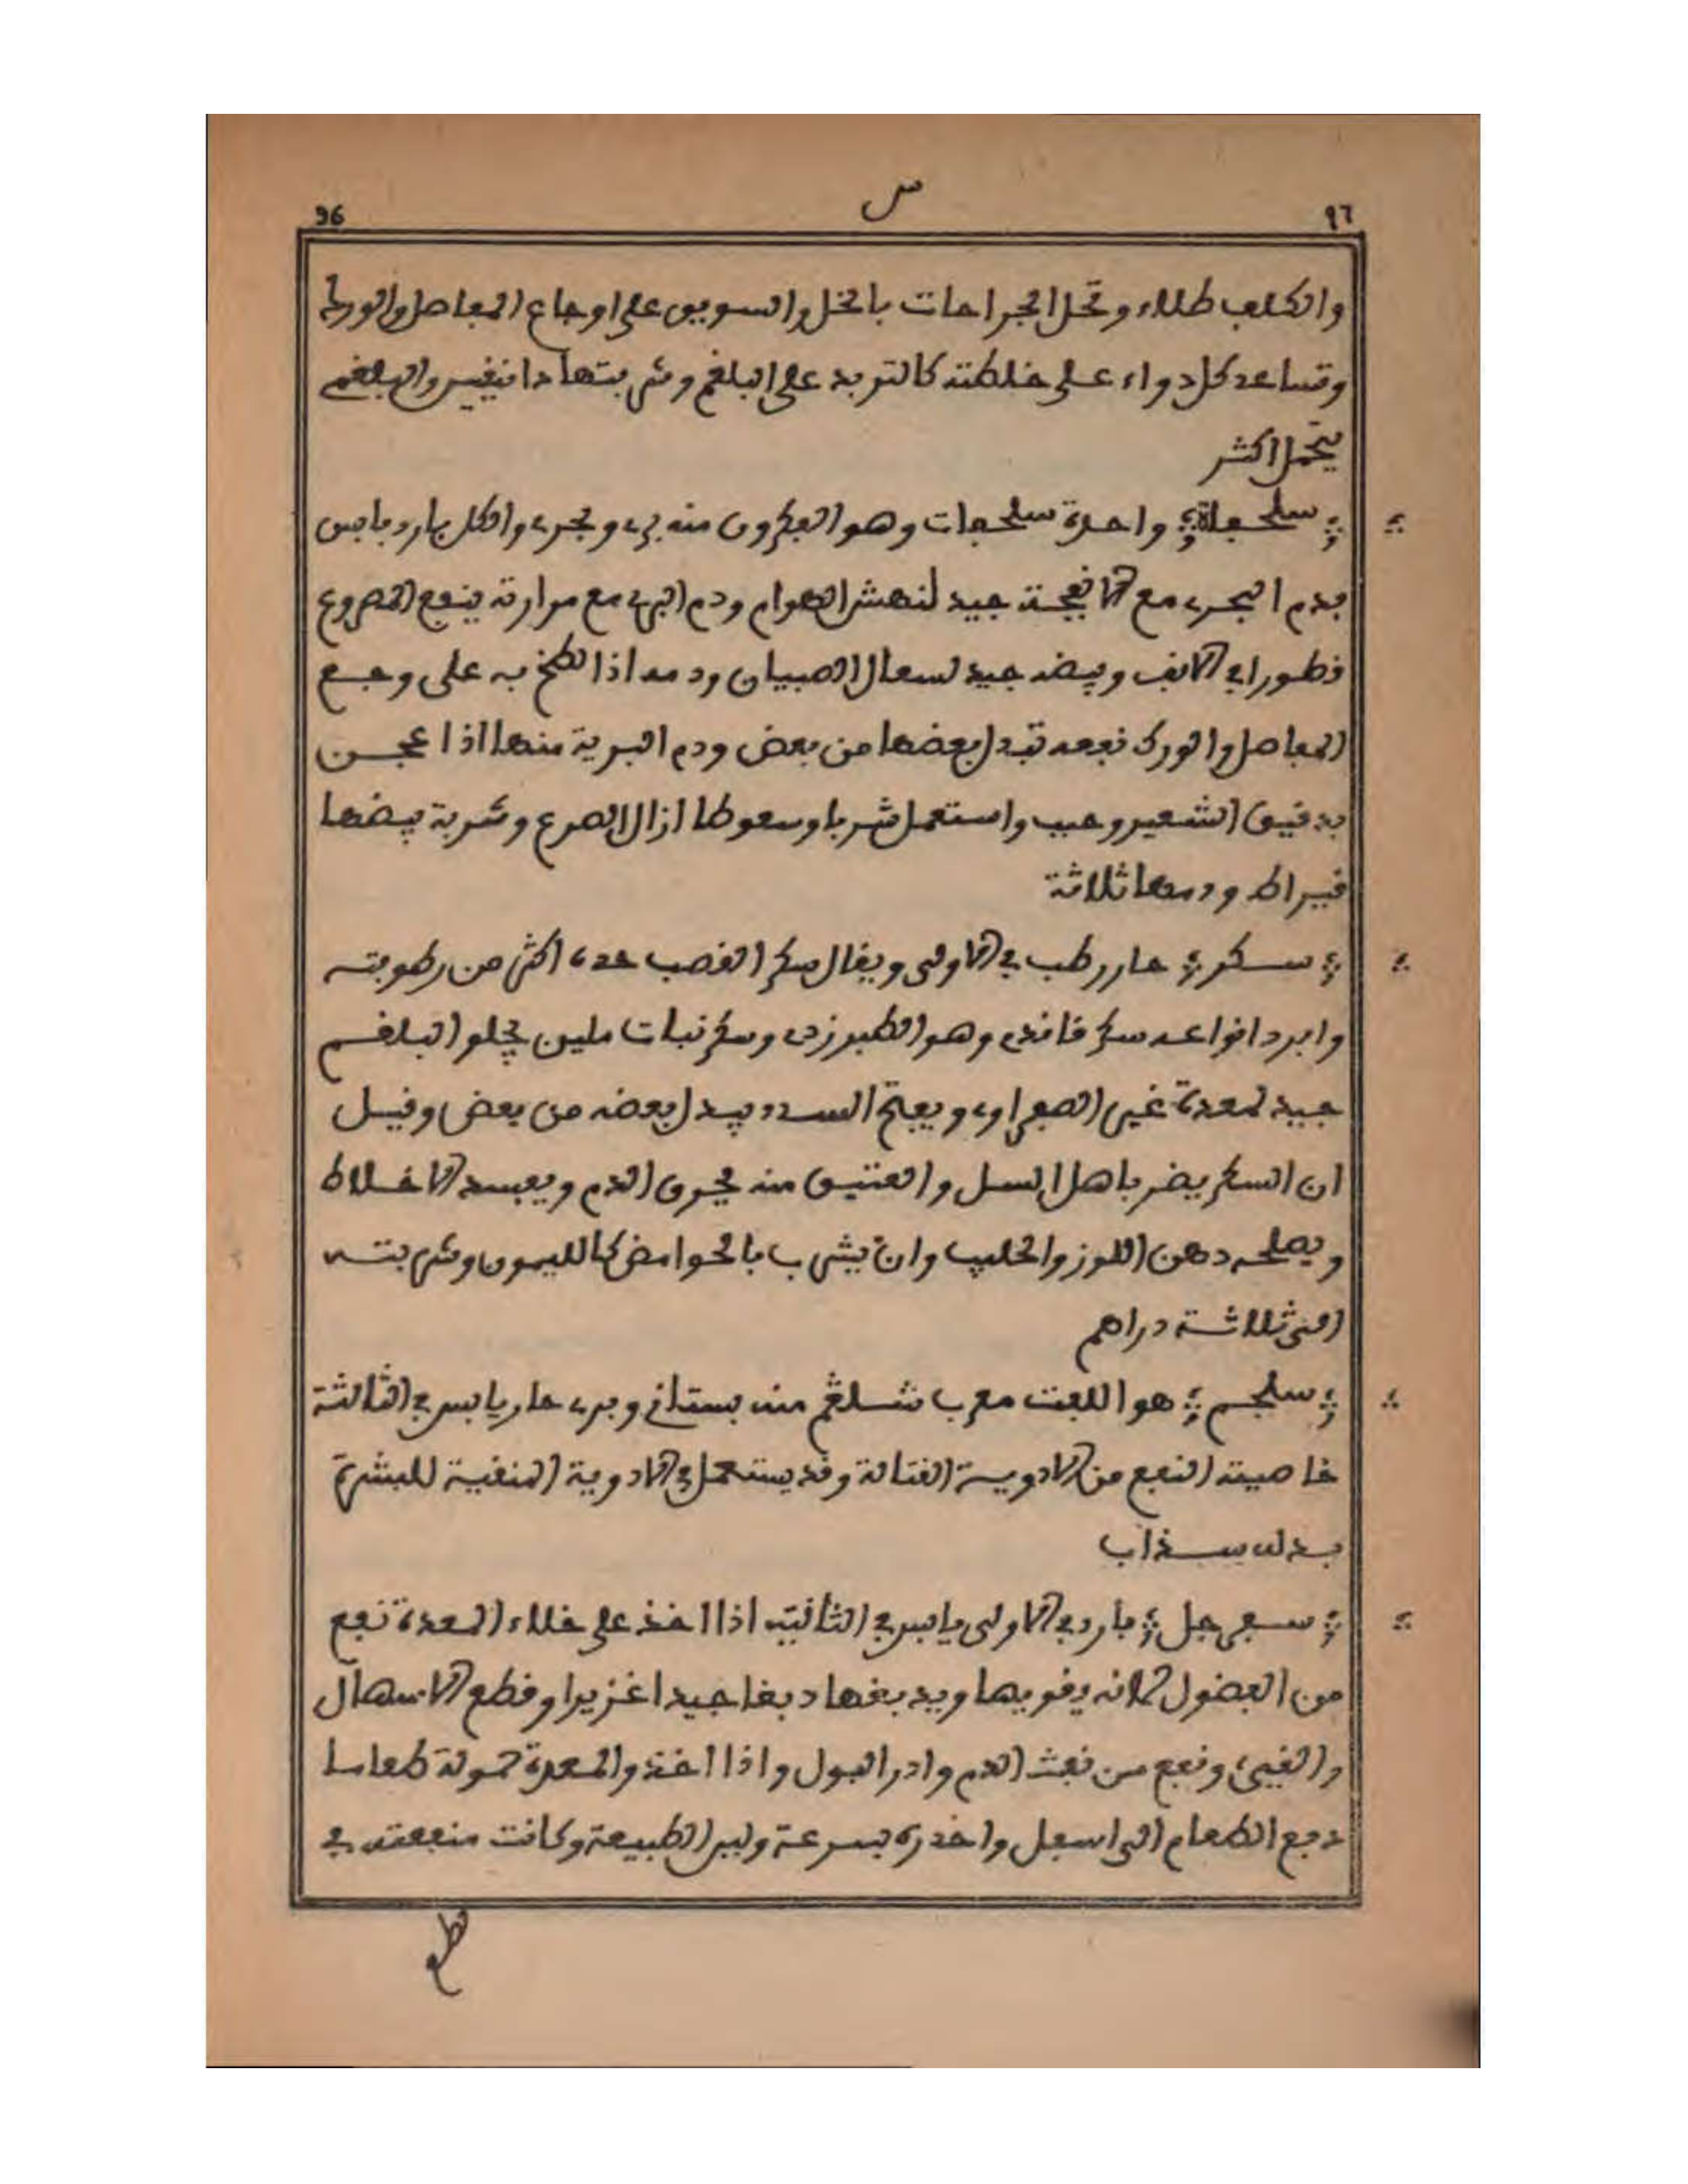 96 س ٩٦
والكلب طلاء وتحل الجراحات بالخل والسويق على اوجاع المفاصل والورك
وتساعد كل دواء على خلطته كالتربد على البلغم وشربتها دانيقين والبلغمي
يتحمل اكثر
سلحفاة واحدة سلحفات وهو الفكرون منه بري وبحري والكل بارد يابس
فدم البحري مع الانفحة جيد لنهش الهوام ودم البري مع مرارته ينفع المصروع
قطورا في الانف وبيضه جيد لسعال الصبيان ودمه اذا لطخ به على وجع
المفاصل والورك نفعه تبدل بعضها من بعض ودم البرية منها اذا عجن
بدقيق الشعير وحبب واستعمل شربا وسعوطا ازال الصرع وشربة بيضها
قيراط ودمها ثلاثة
سكر حار رطب في الاولى ويقال سكر القصب حره اكثر من رطوبته
وابرد انواعه سكر فانيد وهو الطبرزدي وسكر نبات ملين يجلو البلغم
جيد لمعدة غير الصفراوي ويفتح السدد يبدل بعضه من بعض وقيل
ان السكر يضر باهل السل والعتيق منه يحرق الدم ويفسد الاخلاط
ويصلحه دهن اللوز والحليب وان يشرب بالحوامض كالليمون وشربته
الى ثلاثة دراهم
سلجم هو اللفت معرب شلغم منه بستاني وبري حار يابس في الثالثة
خاصيته النفع من الادوية القتالة وقد يستعمل في الادوية المنقية للبشرة
بدله سذاب
سفرجل بارد في الاولى يابس في الثانية اذا اخذ على خلاء المعدة نفع
من الفضول لانه يقويها ويدبغها دبغا جيدا غزيرا وقطع الاسهال
والقيء ونفع من نفث الدم وادر البول واذا اخذ والمعدة مملوة طعاما
دفع الطعام الى اسفل واحدره بسرعة ولين الطبيعة وكانت منفعته في
قطع